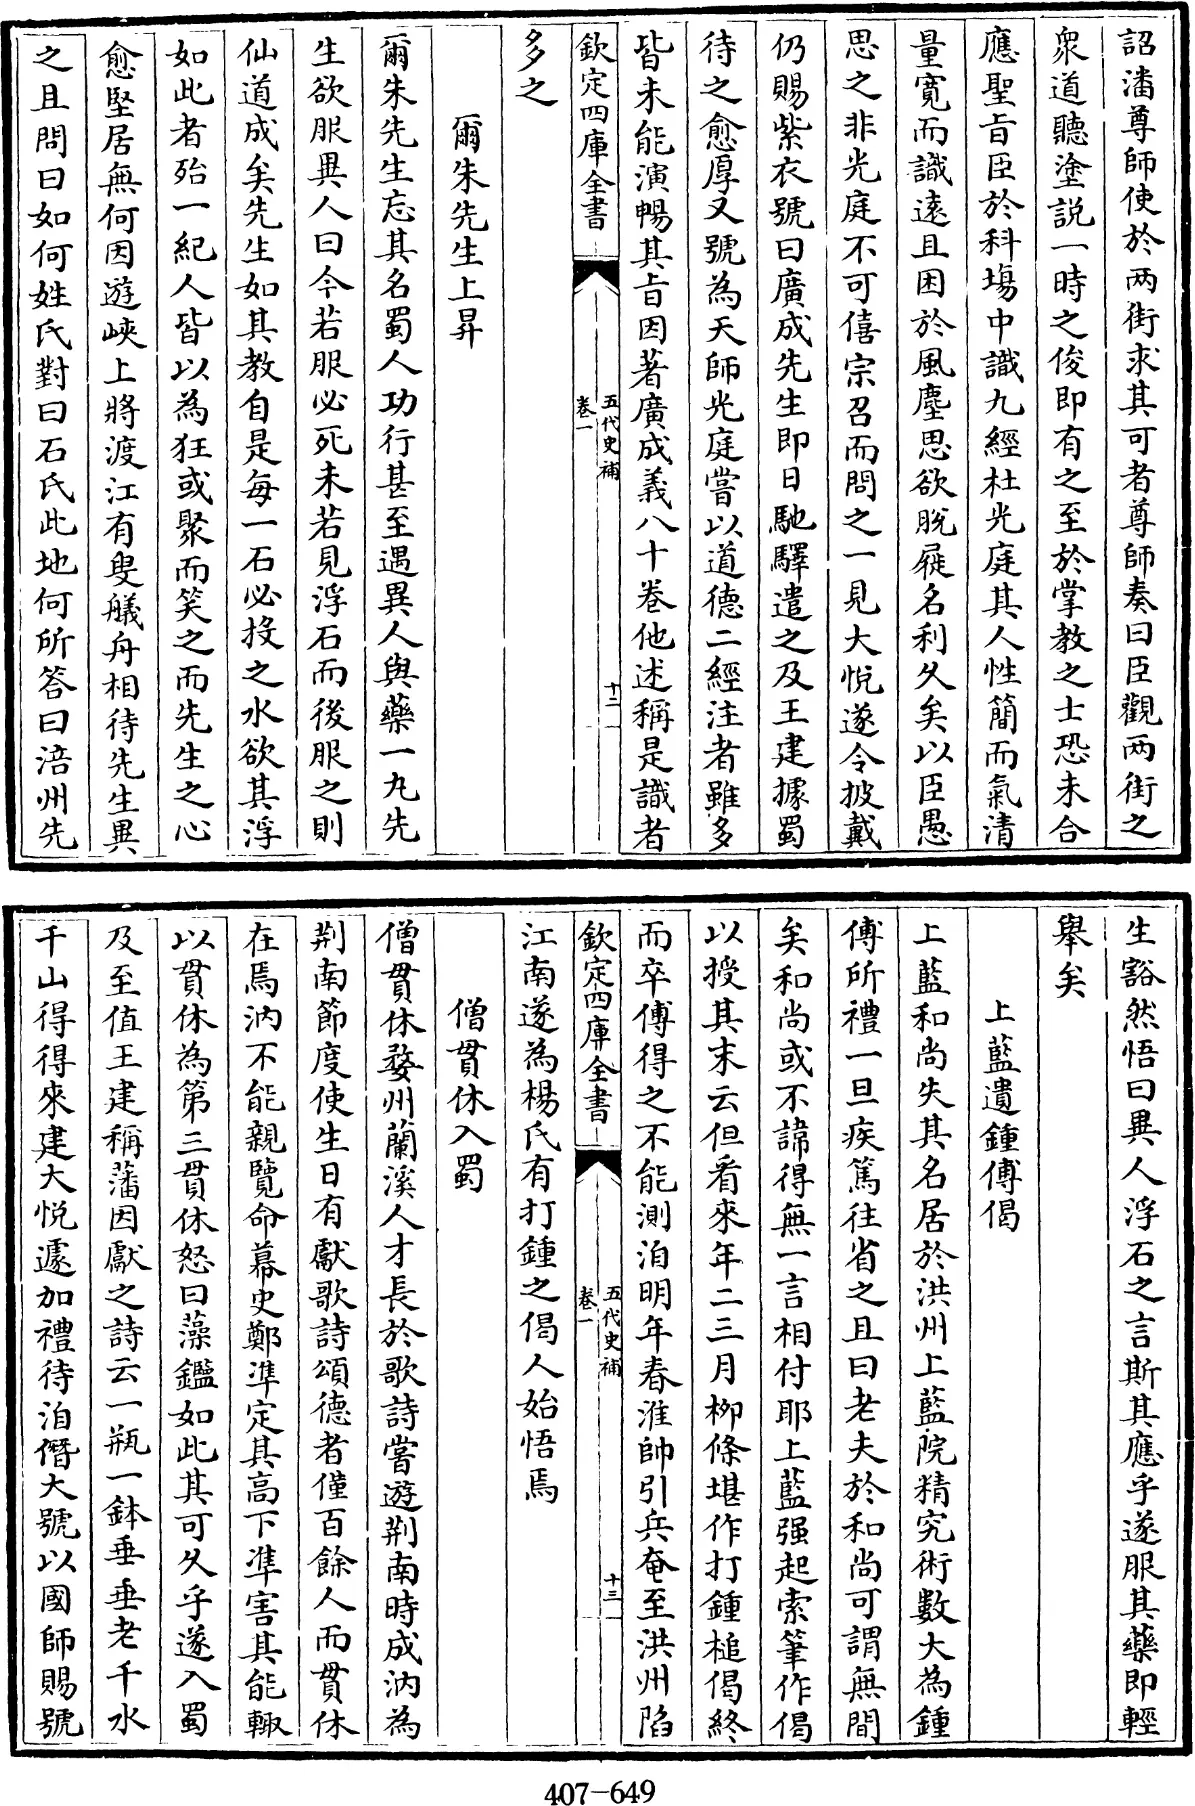 詔潘尊師使於两街求其可者尊師奏曰臣觀两街之
衆道聽塗説一時之俊即有之至於掌教之士恐未合
應聖㫖臣於科塲中識九經杜光庭其人性簡而氣清
量寛而識逺且困於風塵思欲脱屣名利久矣以臣愚
思之非光庭不可僖宗召而問之一見大悦遂令披戴
仍賜紫衣號曰廣成先生即日馳驛遣之及王建據蜀
待之愈厚又號為天師光庭嘗以道德二經注者雖多
皆未能演暢其㫖因著廣成義八十卷他述稱是識者
欽定四庫全書
五代史補
卷一
十二
多之
爾朱先生上昇
爾朱先生忘其名蜀人功行甚至遇異人與藥一丸先
生欲服異人曰今若服必死未若見浮石而後服之則
仙道成矣先生如其教自是每一石必投之水欲其浮
如此者殆一紀人皆以為狂或聚而笑之而先生之心
愈堅居無何因遊峽上將渡江有叟艤舟相待先生異
之且問曰如何姓氏對曰石氏此地何所答曰涪州先
生豁然悟曰異人浮石之言斯其應乎遂服其藥即輕
舉矣
上藍遺鍾傅偈
上藍和尚失其名居於洪州上藍院精究術數大為鍾
傅所禮一旦疾篤往省之且曰老夫於和尚可謂無間
矣和尚或不諱得無一言相付耶上藍强起索筆作偈
以授其末云但看來年二三月栁條堪作打鍾槌偈終
而卒傅得之不能測洎明年春淮帥引兵奄至洪州陷
欽定四庫全書
五代史補
卷一
十三
江南遂為楊氏有打鍾之偈人始悟焉
僧貫休入蜀
僧貫休婺州蘭溪人才長於歌詩嘗遊荆南時成汭為
荆南節度使生日有獻歌詩頌德者僅百餘人而貫休
在焉汭不能親覽命幕史鄭凖定其高下凖害其能輙
以貫休為第三貫休怒曰藻鑑如此其可久乎遂入蜀
及至值王建稱藩因獻之詩云一瓶一鉢垂垂老千水
千山得得來建大悦遽加禮待洎僭大號以國師賜號
407-649